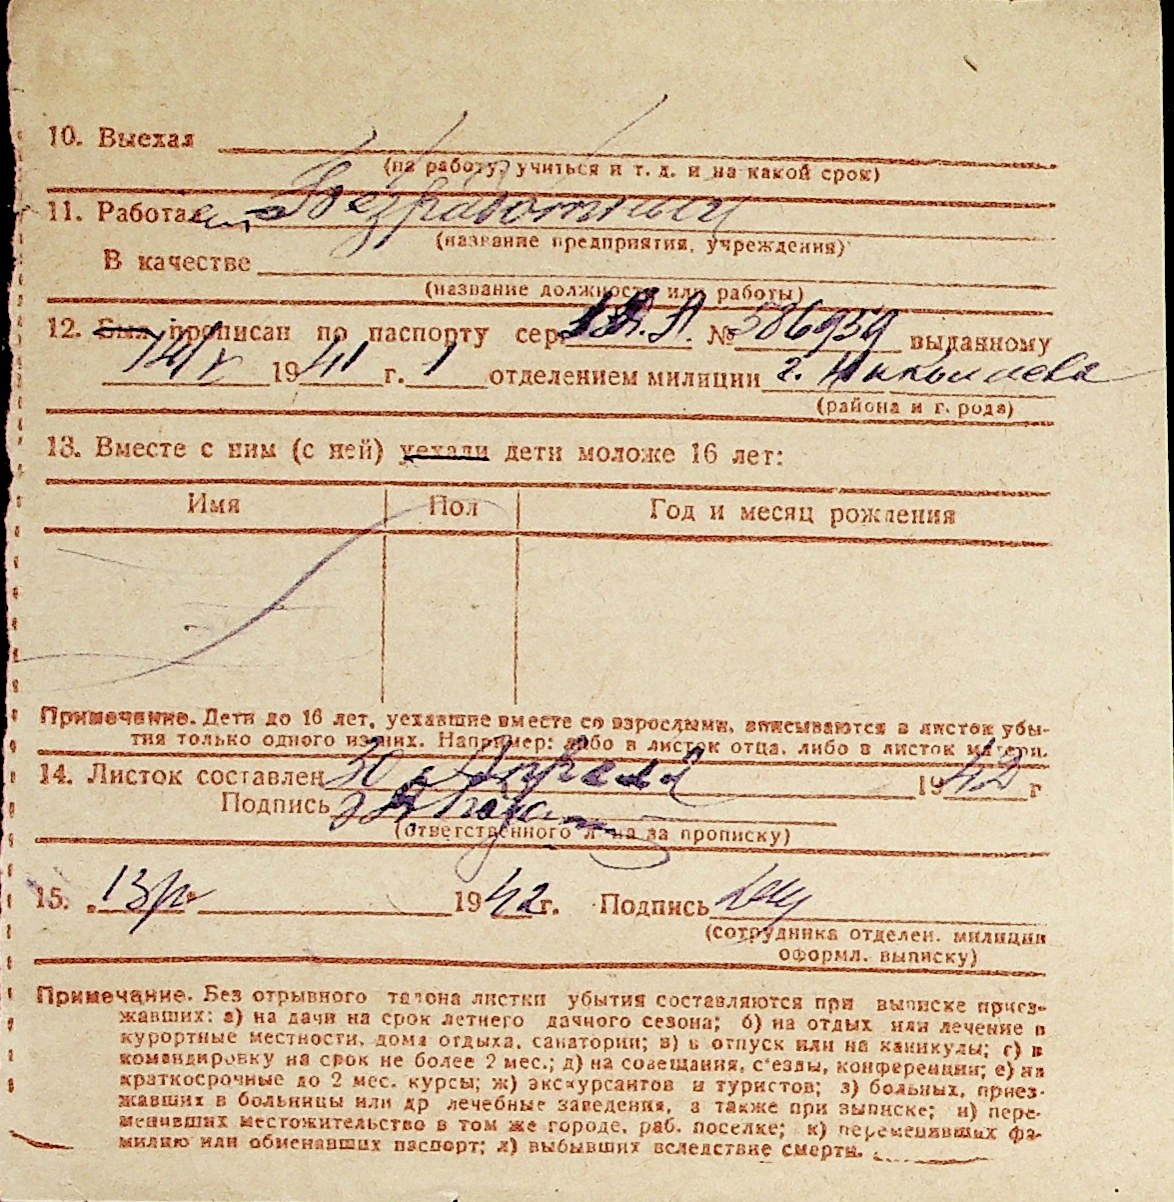 10. Выехал
(на работу, учиться и т. д. и на какой срок)
11. Работает Безработный
(название предприятия, учреждения)
В качестве
(название должности или работы)
12. Был прописан по паспорту сер. № 586959 выданному
14/V 1941 г. 1 отделением милиции г. Николаева
(района и г. рода)
13. Вместе с ним (с ней) уехали дети моложе 16 лет:
Имя Пол Год и месяц рождения
Примечание. Дети до 16 лет, уехавшие вместе со взрослыми, вписываются в листок убы-
тия только одного из них. Например: либо в листок отца, либо в листок матери.
14. Листок составлен 30 Апреля 1942 г
Подпись
(ответственного л на за прописку)
15. 13/ 1942 г. Подпись
(сотрудника отделен. милиции
оформл. выписку)
Примечание. Без отрывного талона листки убытия составляются при выписке приез-
жавших: а) на дачи на срок летнего дачного сезона; б) на отдых или лечение в
курортные местности, дома отдыха, санатории; в) в отпуск или на каникулы; г) в
командировку на срок не более 2 мес.; д) на совещания, с'езды, конференции; е) на
краткосрочные до 2 мес. курсы; ж) экскурсантов и туристов; з) больных, приез-
жавших в больницы или др лечебные заведения, а также при выписке; и) пере-
менивших местожительство в том же городе, раб. поселке; к) переменивших фа-
милию или обменавших паспорт; л) выбывших вследствие смерти.